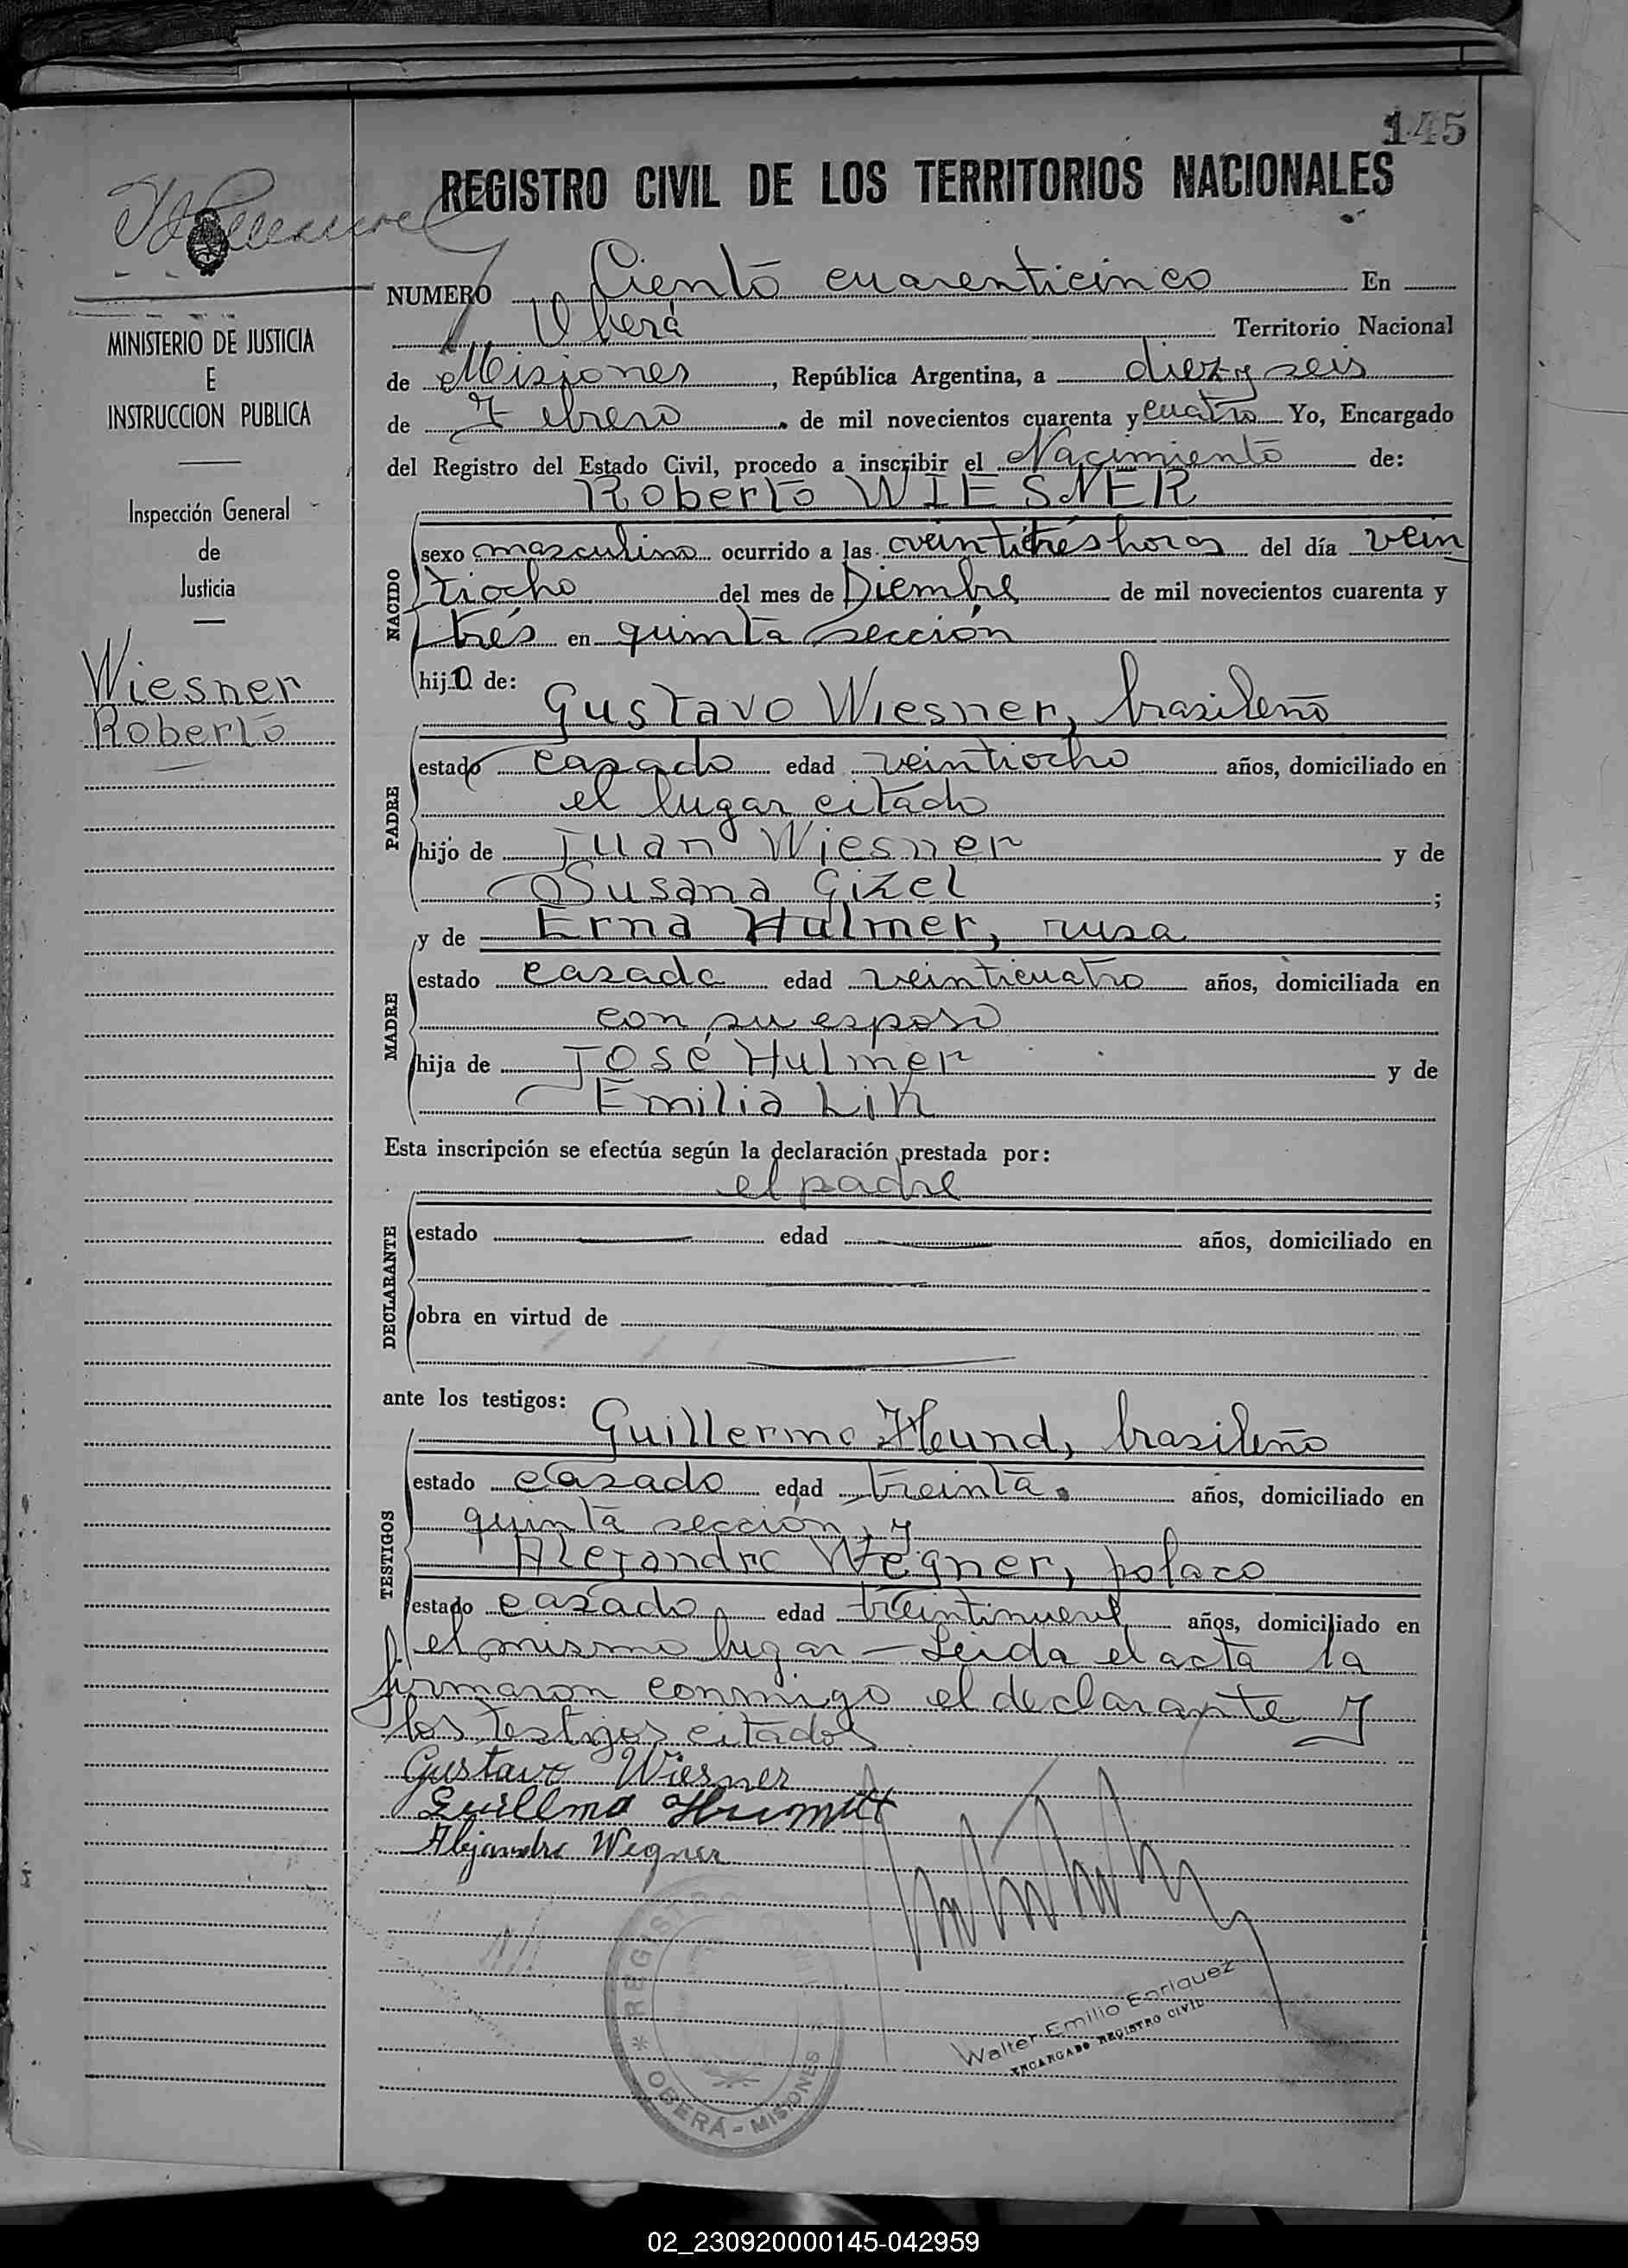 145
REGISTRO CIVIL DE LOS TERRITORIOS NACIONALES
NUMERO Ciento cuarenticinco En
Oberá Territorio Nacional
de Misiones, República Argentina, a diez y seis
de Febrero de mil novecientos cuarenta y cuatro Yo, Encargado
del Registro del Estado Civil, procedo a inscribir el Nacimiento de:
Roberto WIESNER
MINISTERIO DE JUSTICIA
E
INSTRUCCION PUBLICA
Inspección General
de
Justicia
Wiesner
Roberto
NACIDO
sexo masculino ocurrido a las veintitrés horas del día vein
tiocho del mes de Diembre de mil novecientos cuarenta y
trés en quinta sección
hijo de:
Gustavo Wiesner, brasileño
PADRE
estado casado edad veintiocho años, domiciliado en
el lugar citado
hijo de Juan Wiesner y de
Susana Gizel ;
y de Erna Hulmer, rusa
MADRE
estado casada edad veinticuatro años, domiciliada en
con su esposo
hija de José Hulmer y de
Emilia Lik
Esta inscripción se efectúa según la declaración prestada por:
el padre
DECLARANTE
estado edad años, domiciliado en
obra en virtud de
ante los testigos:
Guillermo Hund, brasileño
TESTIGOS
estado casado edad treinta. años, domiciliado en
quinta sección, y
Alejandro Wegner, polaco
estado casado edad treintinueve años, domiciliado en
el mismo lugar - Leida el acta la
firmaron conmigo el declarante y
los testigos citados
Gustavo Wiesner
Guillmo
Alejandro Wegner
REGISTRO CIVIL
* OBERÁ - MISIONES
Walter Emilio Enriquez
ENCARGADO REGISTRO CIVIL
02_230920000145-042959